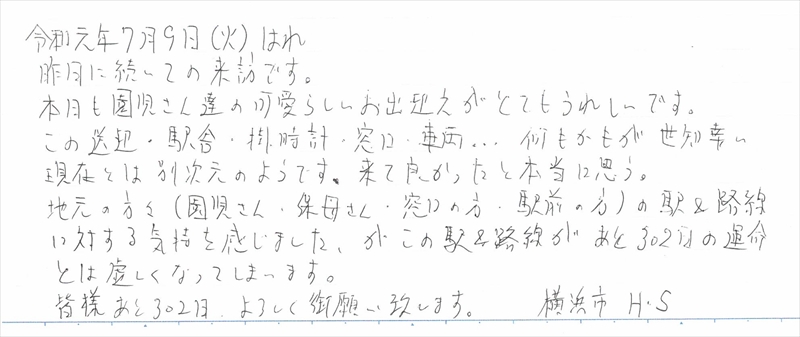 令和元年7月9日(火)はれ
昨日に続いての来訪です。
本日も園児さん達の可愛らしいお出迎えがとてもうれしいです。
この送迎・駅舎・掛時計・窓口・車両… 何もかもが世知辛い
現在とは別次元のようです。来て良かったと本当に思う。
地元の方々(園児さん・保母さん・窓口の方・駅前の方)の駅&路線
に対する気持を感じました、がこの駅&路線があと302日の運命
とは虚しくなってしまいます。
皆様あと302日、よろしく御願い致します。 横浜市 H・S